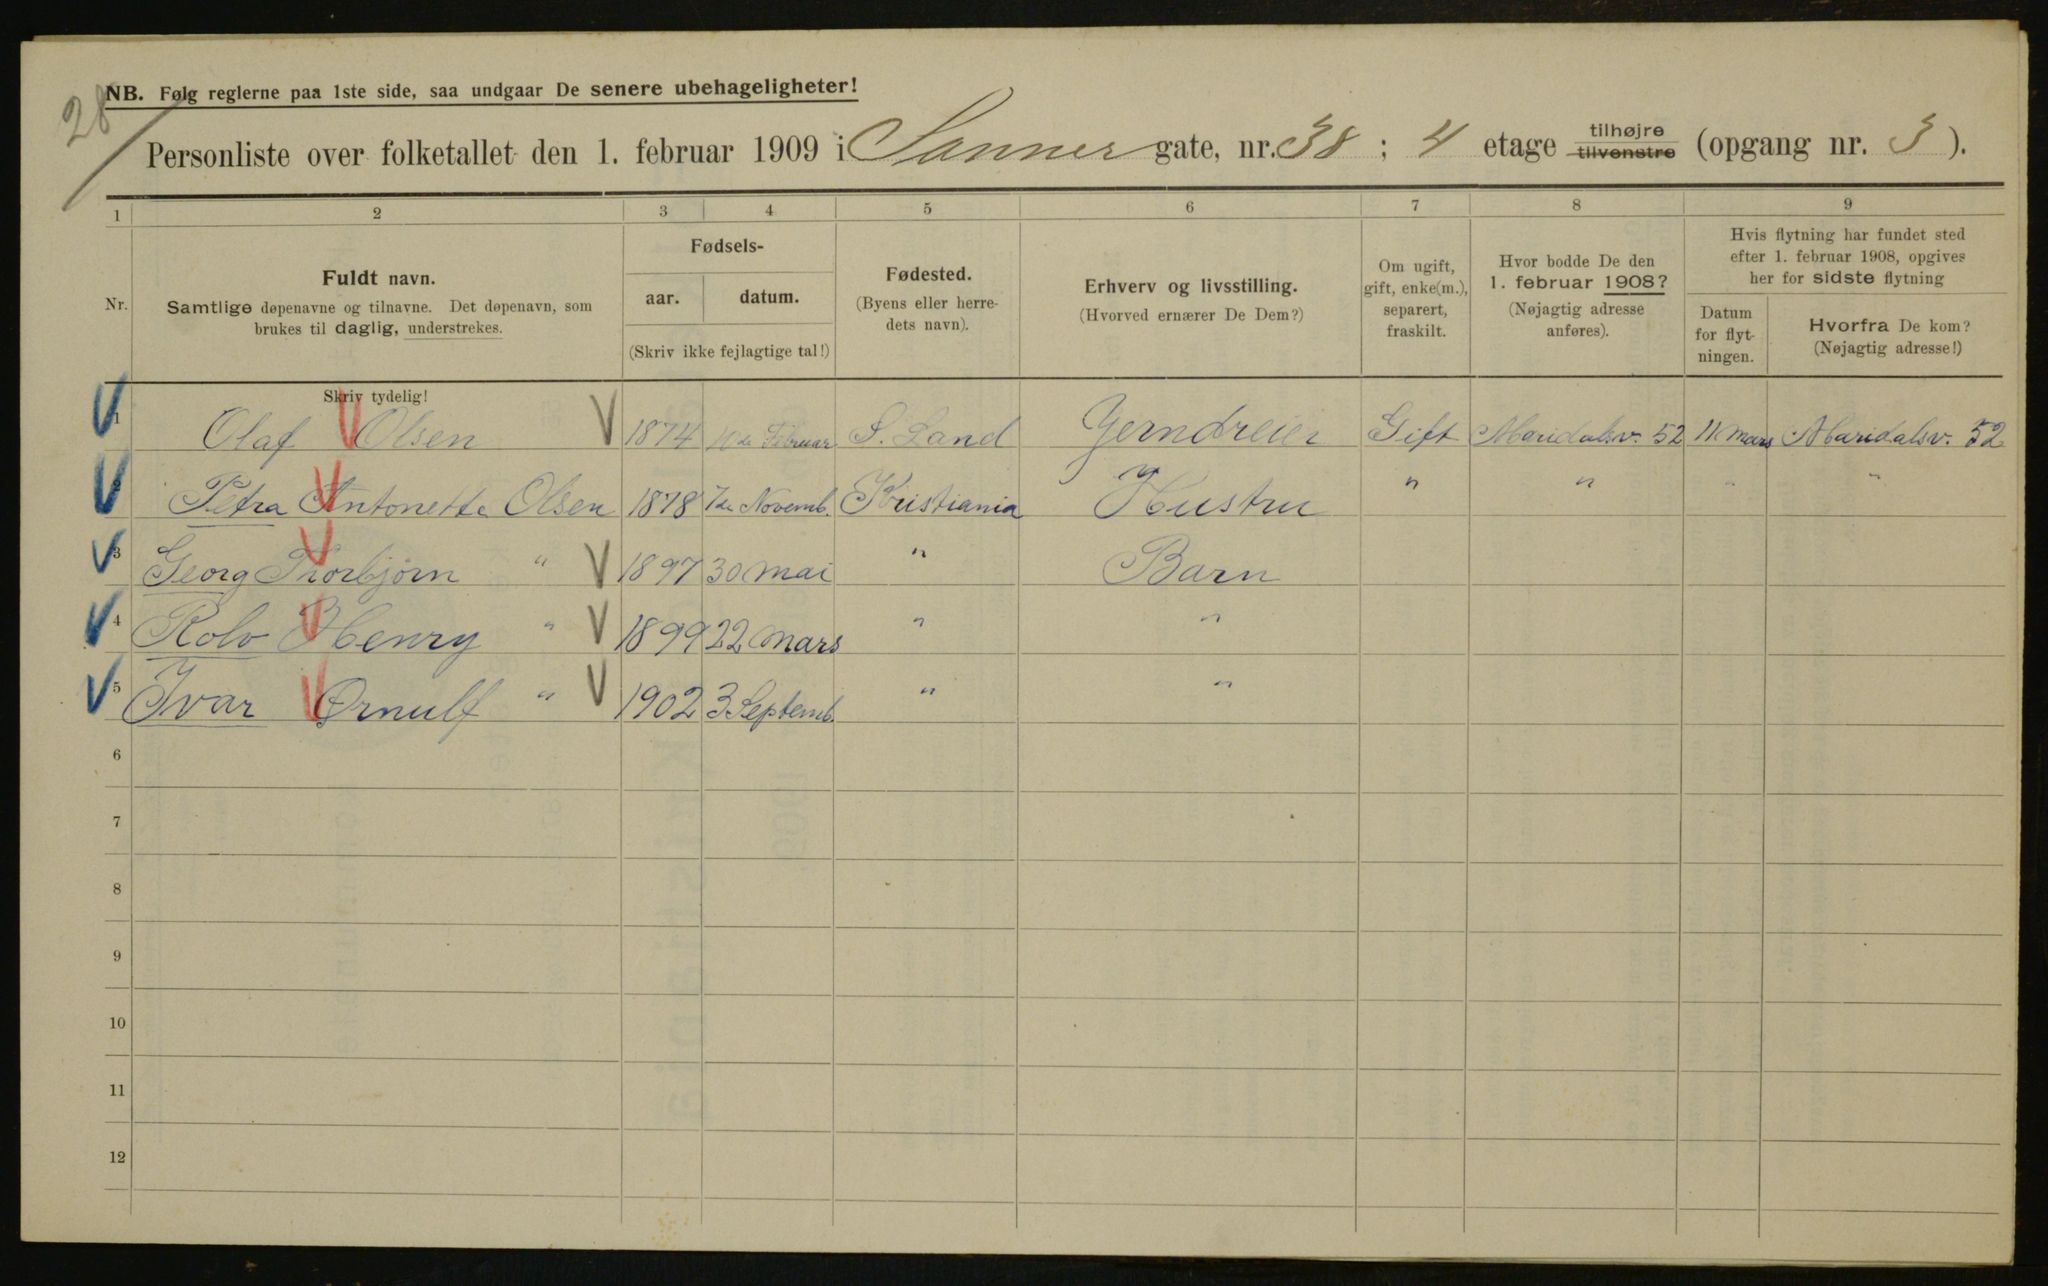 28
NB. Følg reglerne paa 1ste side, saa undgaar De senere ubehageligheter!
Personliste over folketallet den 1. februar 1909 i Sanner gate, nr. 38 ; 4 etage tilhøjre tilvenstre (opgang nr. 3 ).
1 2 3 4 5 6 7 8 9
Nr.
Fuldt navn.
Samtlige døpenavne og tilnavne. Det døpenavn, som
brukes til daglig, understrekes.
Fødsels-
aar. datum.
(Skriv ikke fejlagtige tal!)
Fødested.
(Byens eller herre-
dets navn).
Erhverv og livsstilling.
(Hvorved ernærer De Dem?)
Om ugift,
gift, enke(m.),
separert,
fraskilt.
Hvor bodde De den
1. februar 1908?
(Nøjagtig adresse
anføres).
Hvis flytning har fundet sted
efter 1. februar 1908, opgives
her for sidste flytning
Datum
for flyt-
ningen.
Hvorfra De kom?
(Nøjagtig adresse!)
Skriv tydelig!
1 Olaf Olsen 1874 10de Februar S. Land Jerndreier Gift Maridalsv. 52 11 mars Maridalsv. 52
Petra Antonette Olsen 1878 7de Novemb. Kristiania Hustru " " " "
3 Georg Thorbjørn " 1897 30 mai " Barn
4 Rolv Henry " 1899 22 mars " "
5 Ivar Ørnulf " 1902 3 Septemb. " "
6
7
8
9
10
11
12